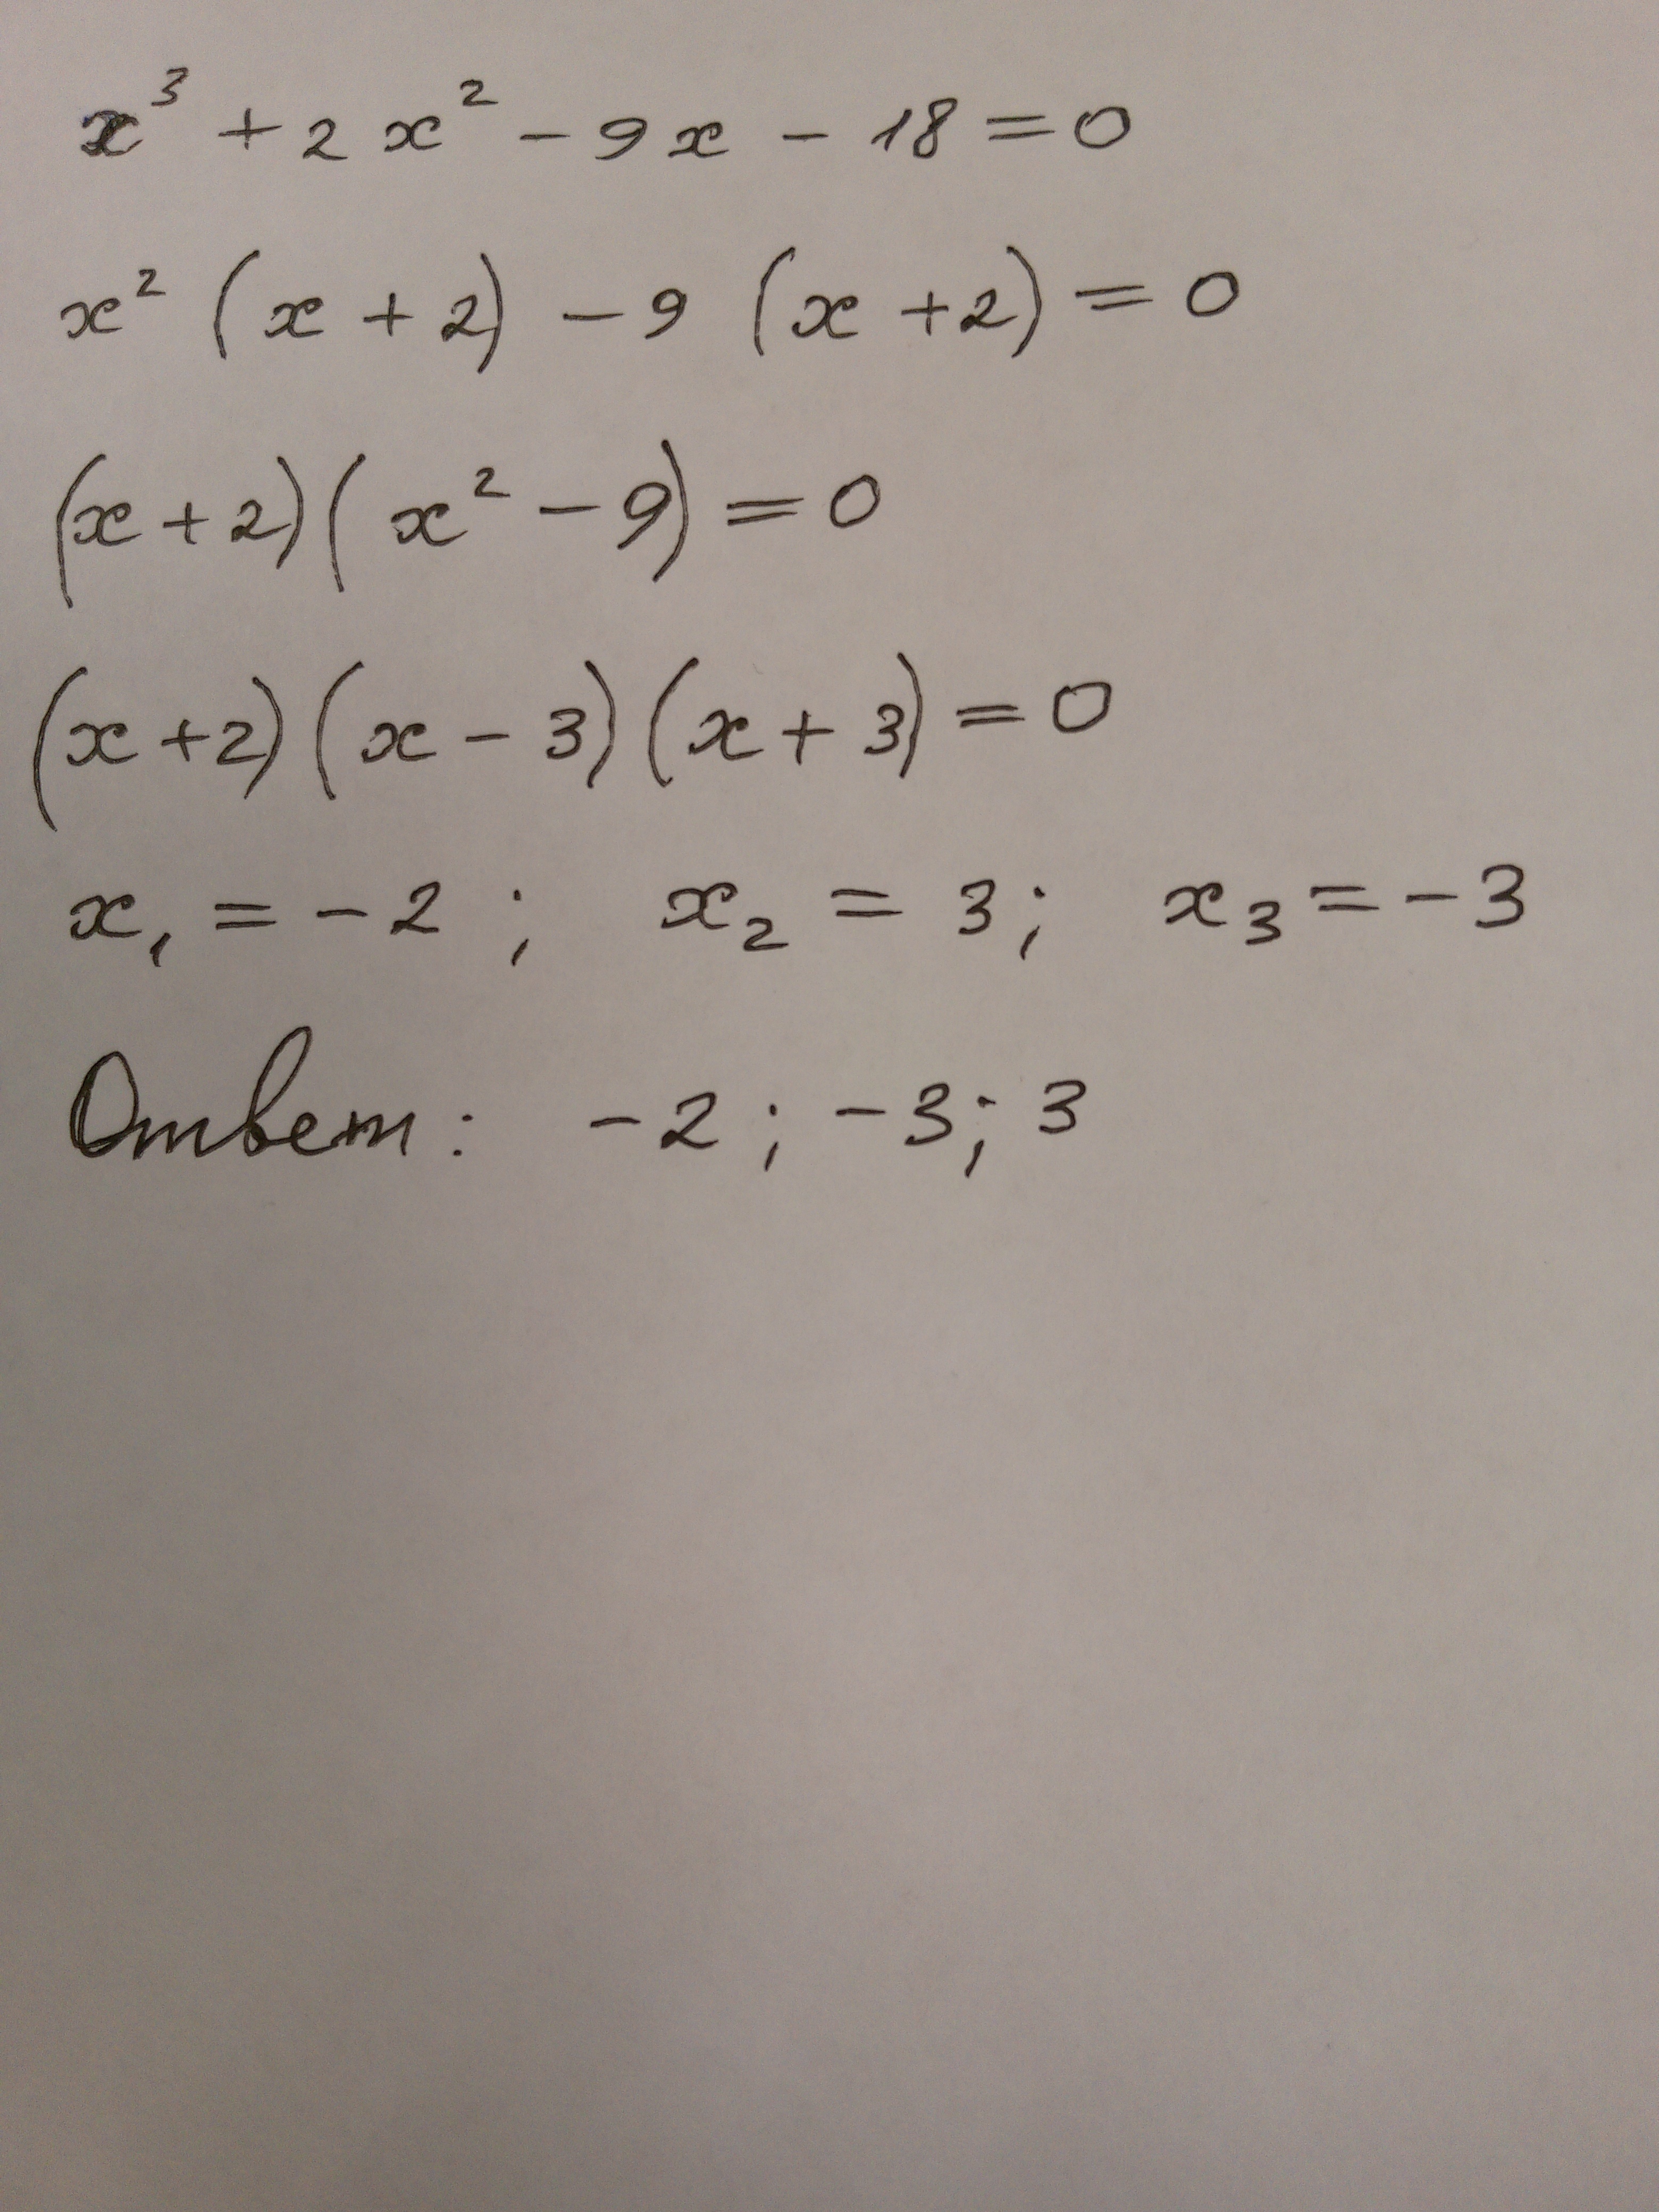 x³ + 2x² - 9x - 18 = 0
x² (x + 2) - 9 (x + 2) = 0
(x + 2)(x² - 9) = 0
(x + 2)(x - 3)(x + 3) = 0
x₁ = -2 ; x₂ = 3; x₃ = -3
Ответ: -2 ; -3; 3